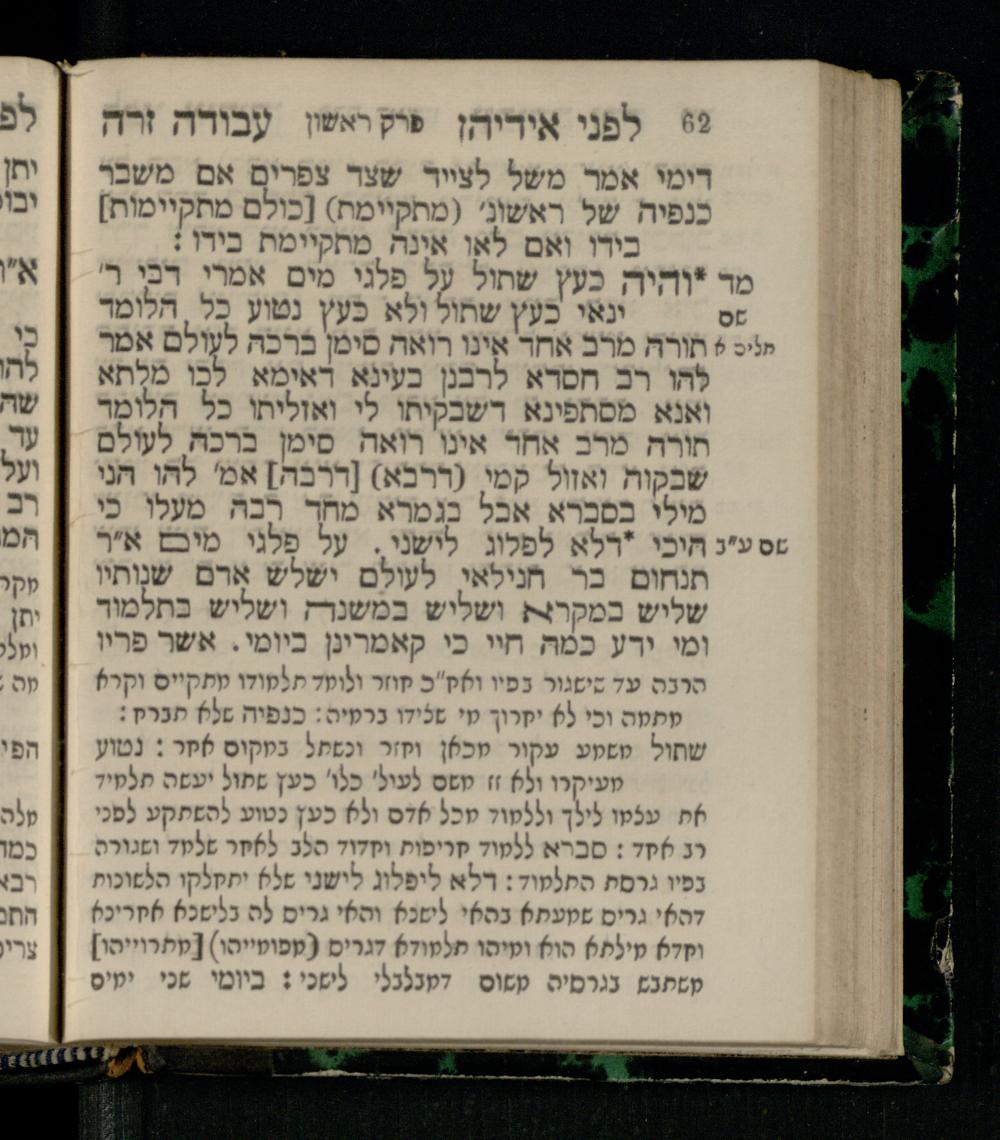 62 לפני אידיהן פרק ראשון עבודה זרה
דימי אמר משל לצייד שצד צפרים אם משבר
כנפיה של ראשונ׳ (מתקיימת) [כולם מתקיימות]
בידו ואם לאו אינה מתקיימת בידו :
מד *והיה כעץ שתול על פלגי מים אמרי דבי ר׳
שם ינאי כעץ שתול ולא כעץ נטוע כל הלומד
תלים א תורה מרב אחד אינו רואה סימן ברכה לעולם אמר
להו רב חסדא לרבנן בעינא דאימא לכו מלתא
ואנא מסתפינא דשבקיתו לי ואזליתו כל הלומד
תורה מרב אחד אינו רואה סימן ברכה לעולם
שבקוה ואזול קמי (דרבא) [דרבה] אמ׳ להו הני
מילי בסברא אבל בגמרא מחד רבה מעלו כי
שם ע״ב היכי *דלא לפלוג לישני. על פלגי מים א״ר
תנחום בר חנילאי לעולם ישלש אדם שנותיו
שליש במקרא ושליש במשנה ושליש בתלמוד
ומי ידע כמה חיי כי קאמרינן ביומי. אשר פריו
הרבה עד שישגור בפיו ואח״כ חוזר ולומד תלמודו מתקיים וקרא
מתמה וכי לא יחרוך מי שצידו ברמיה: כנפיה שלא תברח :
שתול משמע עקור מכאן וחזר ונשתל במקום אחר : נטוע
מעיקרו ולא זז משם לעול׳ כלו׳ כעץ שתול יעשה תלמיד
את עצמו לילך וללמוד מכל אדם ולא כעץ נטוע להשתקע לפני
רב אחד : סברא ללמוד חריפות וחדוד הלב לאחר שלמד ושגורה
בפיו גרסת התלמוד: דלא ליפלוג לישני שלא יתחלקו הלשונות
דהאי גריס שמעתא בהאי לישנא והאי גריס לה בלישנא אחרינא
וחדא מילתא הוא ומיהו תלמודא דגריס (מפומייהו) [מתרוייהו]
משתבש בגרסיה משום דמבלבלי לישני : ביומי שני ימים